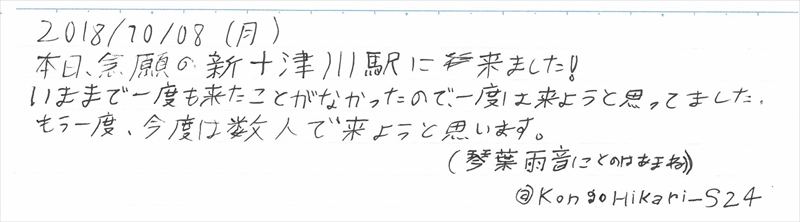 2018/10/08 (月)
本日、念願の新十津川駅に来ました!
いままで一度も来たことがなかったので、一度は来ようと思ってました.
もう一度、今度は数人で来ようと思います。
(琴葉雨音(ことのはあまね))
@KongoHikari_S24